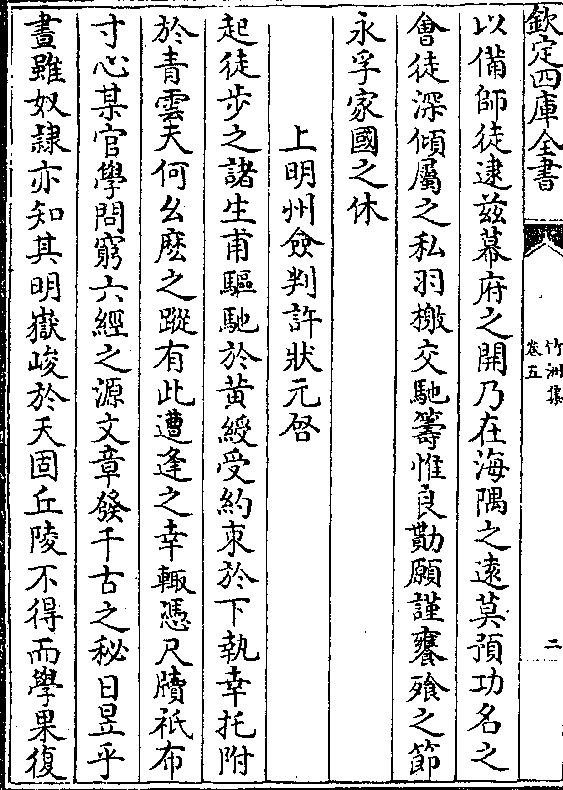 欽定四庫全書
竹洲集
卷五
二
以備師徒逮兹幕府之開乃在海隅之遠莫預功名之
㑹徒深傾屬之私羽檄交馳籌惟良勩願謹饔飱之節
永孚家國之休
上明州僉判許狀元啓
起徒步之諸生甫驅馳於黄綬受約束於下執幸托附
於青雲天何幺麽之蹤有此遭逢之幸輙憑尺牘祗布
寸心某官學問窮六經之源文章發千古之秘日昱乎
晝雖奴隷亦知其明嶽峻於天固丘陵不得而學果復